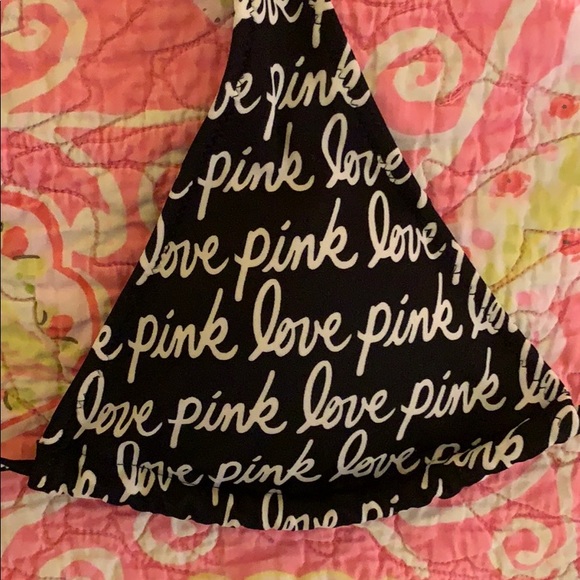 love p
ve pink
pink love
love pink love p
e pink love pink lo
love pink love pink lo
nk love pink love pink
k love pi